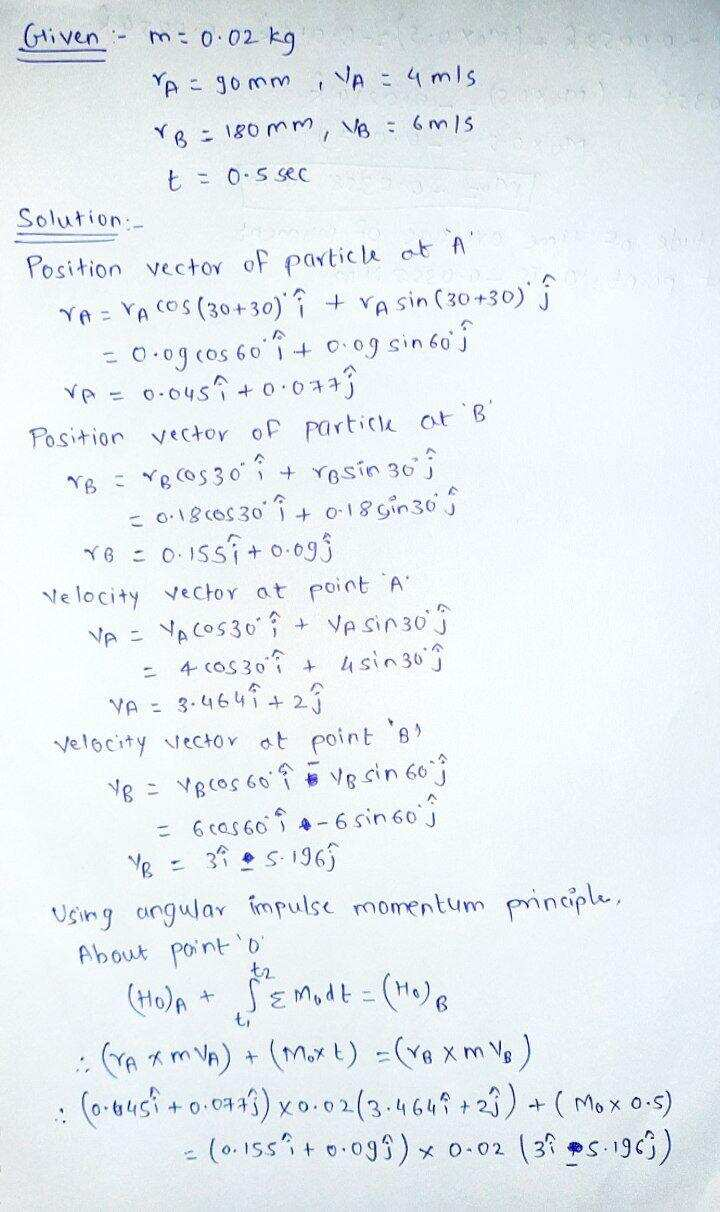 Given :- m = 0.02 kg
rA = 90 mm , VA = 4 m/s
rB = 180 mm, VB = 6 m/s
t = 0.5 sec
Solution:-
Position vector of particle at 'A'
rA = rA cos (30+30)° î + rA sin (30+30)° ĵ
= 0.09 cos 60° î + 0.09 sin 60° ĵ
rA = 0.045 î + 0.077 ĵ
Position vector of particle at 'B'
rB = rB cos 30° î + rB sin 30° ĵ
= 0.18 cos 30° î + 0.18 sin 30° ĵ
rB = 0.155 î + 0.09 ĵ
Velocity vector at point 'A'
VA = VA cos 30° î + VA sin 30° ĵ
= 4 cos 30° î + 4 sin 30° ĵ
VA = 3.464 î + 2 ĵ
velocity vector at point 'B'
VB = VB cos 60° î - VB sin 60° ĵ
= 6 cos 60° î - 6 sin 60° ĵ
VB = 3 î - 5.196 ĵ
Using angular impulse momentum principle,
About point 'O'
(Ho)A + ∫t1t2 Σ Mo dt = (Ho)B
∴ (rA × m VA) + (Mo × t) = (rB × m VB)
∴ (0.045 î + 0.077 ĵ) × 0.02 (3.464 î + 2 ĵ) + ( Mo × 0.5)
= (0.155 î + 0.09 ĵ) × 0.02 (3 î - 5.196 ĵ)